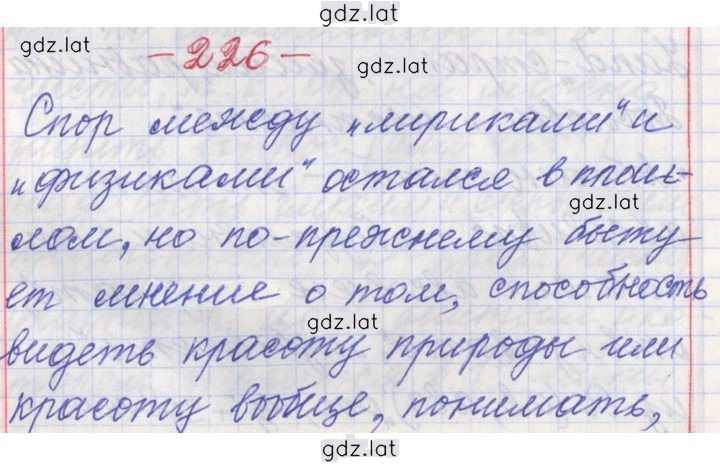 gdz.lat
gdz.lat
-226-
gdz.lat
Спор между „лириками“ и
„физиками“ остался в прош-
gdz.lat
лом, но по-прежнему быту
ет мнение о том, способность
gdz.lat
видеть красоту природы или
красоту вообще, понимать,
gdz.lat